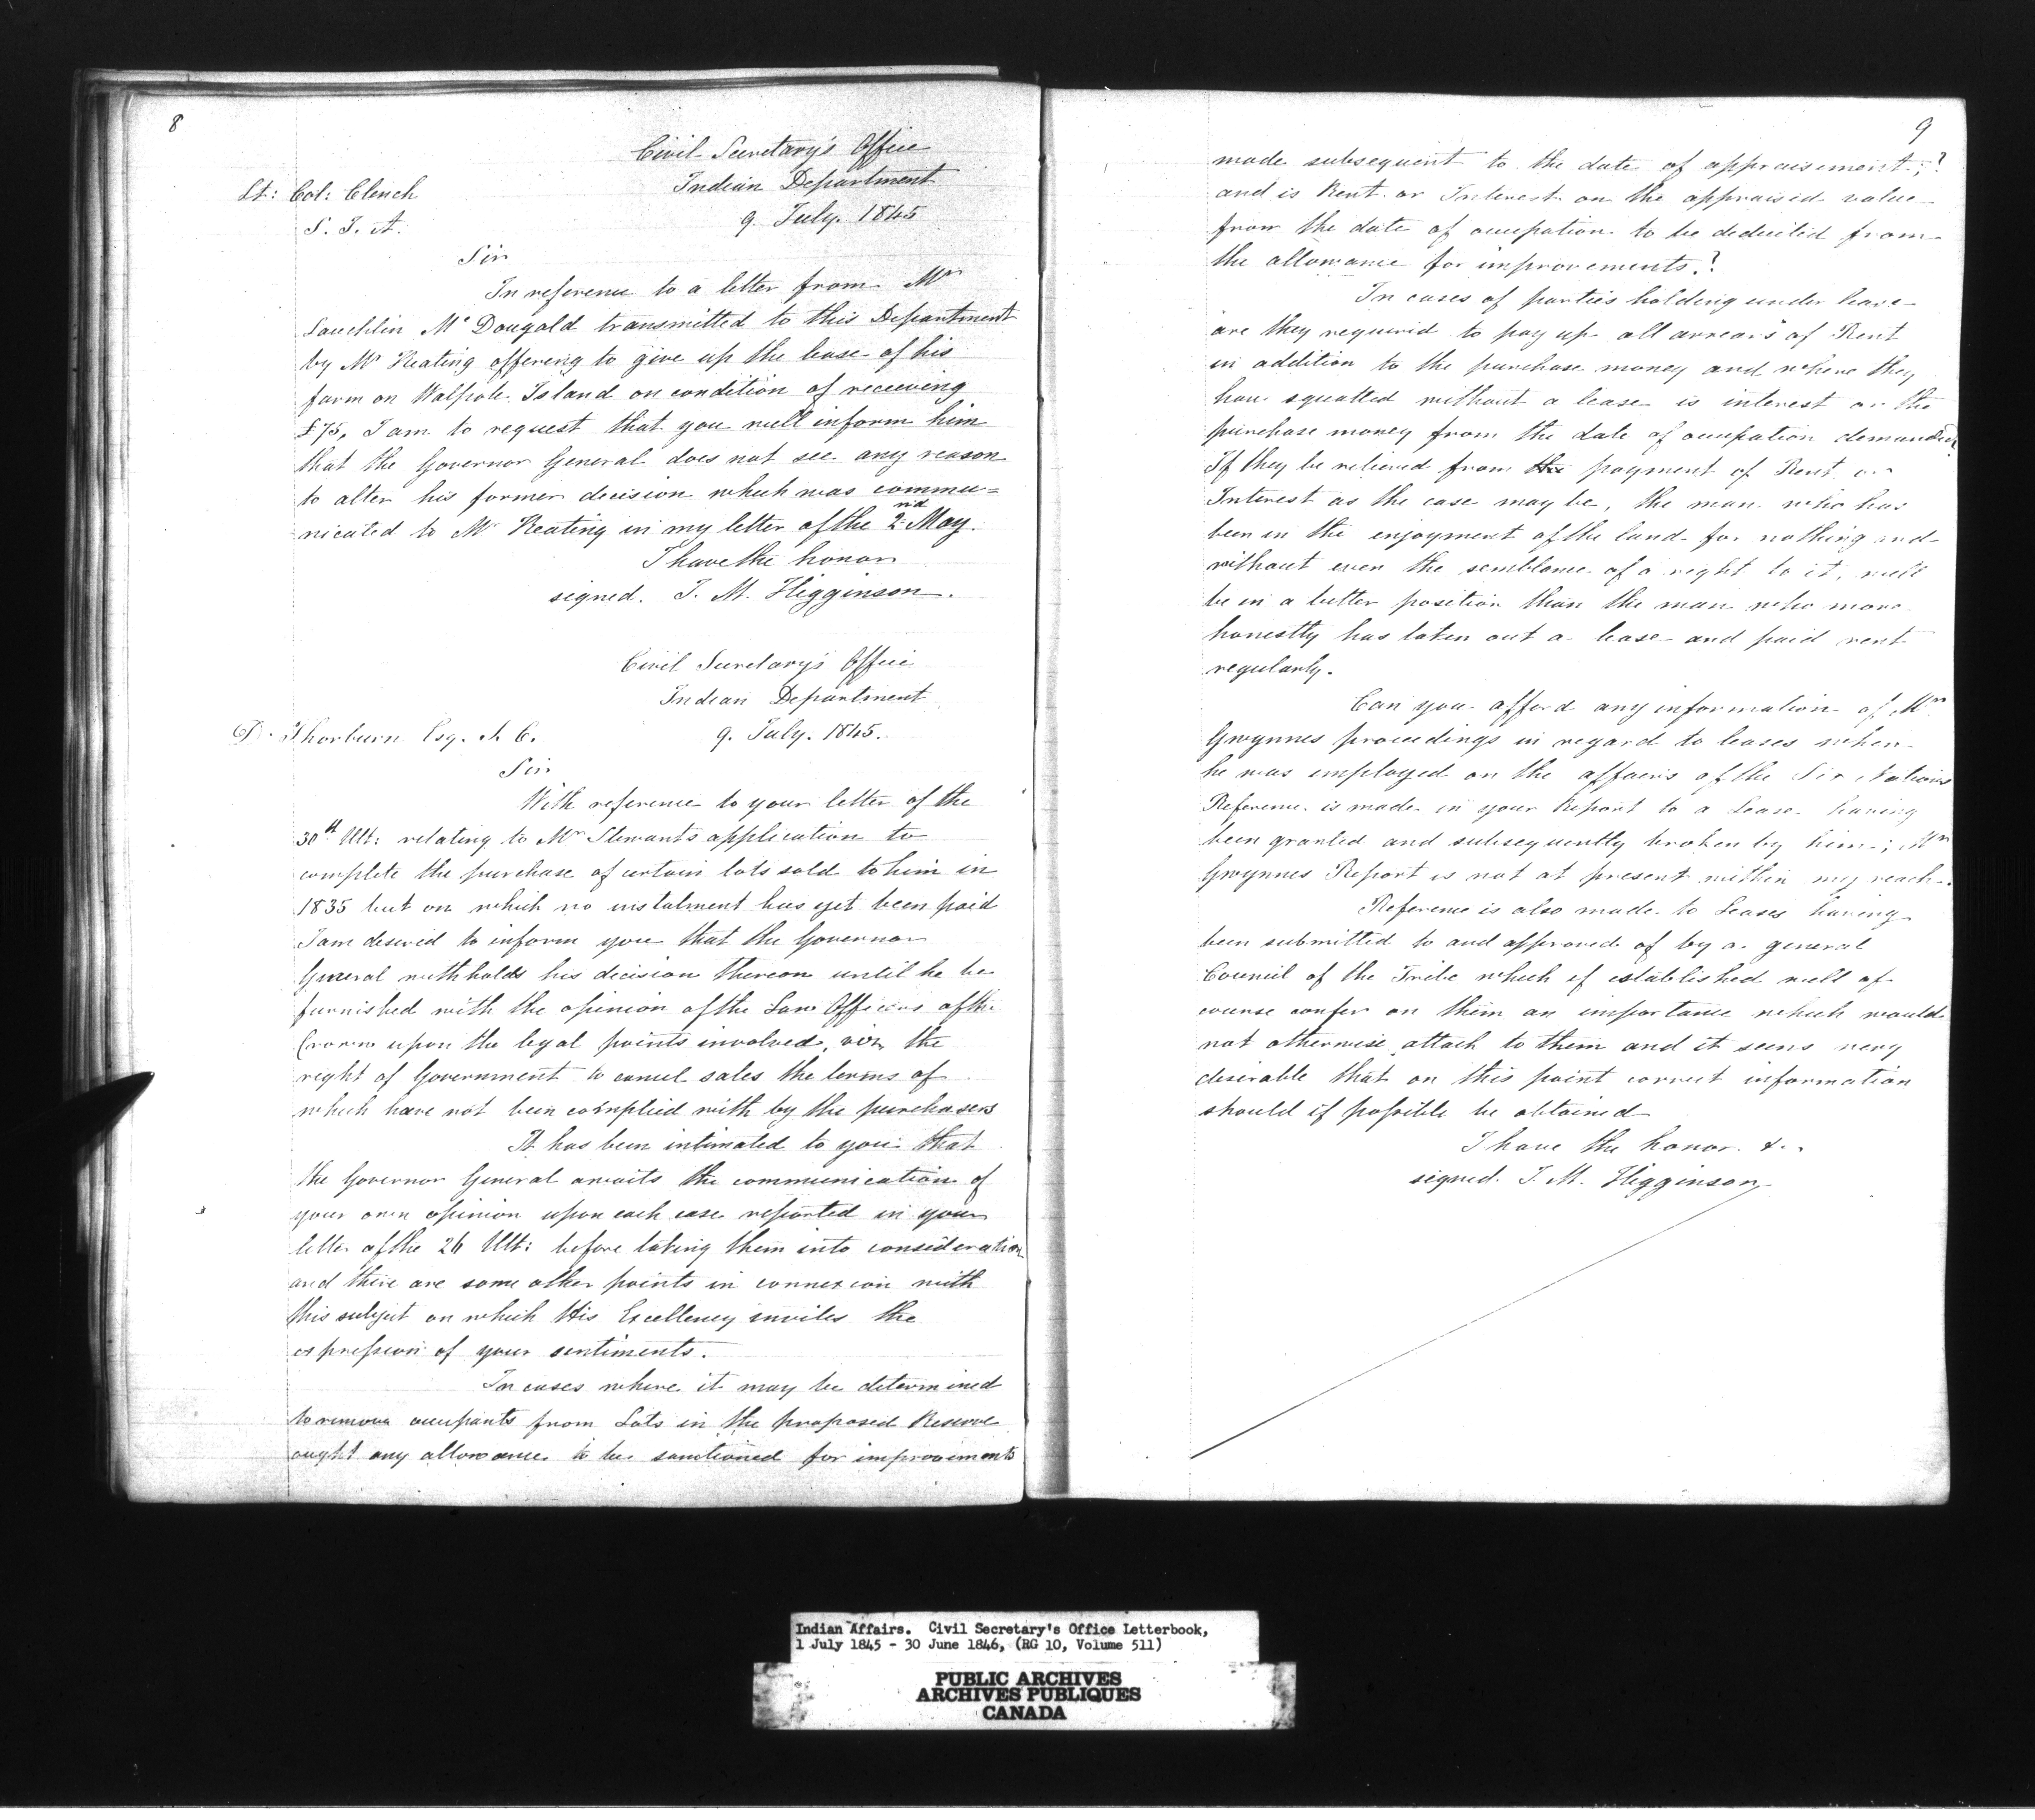 8
Civil Secretary's Office
Indian Department
9. July. 1845
Lt: Col: Clench
S. I. A.
Sir
In reference to a letter from Mr
Lauchlin Mc Dougald transmitted to this Department
by Mr Keating offering to give up the lease of his
farm on Walpole Island on condition of receiving
£75, I am to request that you will inform him
that the Governor General does not see any reason
to alter his former decision which was commu=
nicated to Mr Keating in my letter of the 2nd May.
I have the honor
signed. J. M. Higginson.
Civil Secretary's Office
Indian Department
9. July. 1845.
D. Thorburn Esq. I. C.
Sir
With reference to your letter of the
30th Ult: relating to Mr Stewarts application to
complete the purchase of certain lots sold to him in
1835 but on which no instalment has yet been paid
I am desired to inform you that the Governor
General withholds his decision thereon until he be
furnished with the opinion of the Law Officers of the
Crown upon the legal points involved, viz, the
right of Government to cancel sales the terms of
which have not been complied with by the purchasers
It has been intimated to you that
the Governor General awaits the communication of
your own opinion upon each case reported in your
letter of the 26 Ult: before taking them into consideration
and there are some other points in connexion with
this subject on which His Excellency invites the
expression of your sentiments.
In cases where it may be determined
to remove occupants from Lots in the proposed Reserve
ought any allowance to be sanctioned for improvements
9
made subsequent to the date of appraisement;?
and is Rent or Interest on the appraised value
from the date of occupation to be deducted from
the allowance for improvements?
In cases of parties holding under lease
are they required to pay up all arrears of Rent
in addition to the purchase money and where they
have squatted without a lease is interest on the
purchase money from the date of occupation demanded
If they be relieved from the payment of Rent or
Interest as the case may be, the man who has
been in the enjoyment of the land for nothing and
without even the semblance of a right to it, will
be in a better position than the man who more
honestly has taken out a lease and paid rent
regularly.
Can you afford any information of Mr
Gwynnes proceedings in regard to leases when
he was employed on the affairs of the Six Nations
Reference is made in your Report to a Lease having
been granted and subsequently broken by him; Mr
Gwynnes Report is not at present within my reach.
Reference is also made to Leases having
been submitted to and approved of by a general
Council of the Tribe which if established will of
course confer on them an importance which would
not otherwise attach to them and it seems very
desirable that on this point correct information
should if possible be obtained
I have the honor &.
signed. J. M. Higginson
Indian Affairs. Civil Secretary's Office Letterbook,
1 July 1845 - 30 June 1846, (RG 10, Volume 511)
PUBLIC ARCHIVES
ARCHIVES PUBLIQUES
CANADA